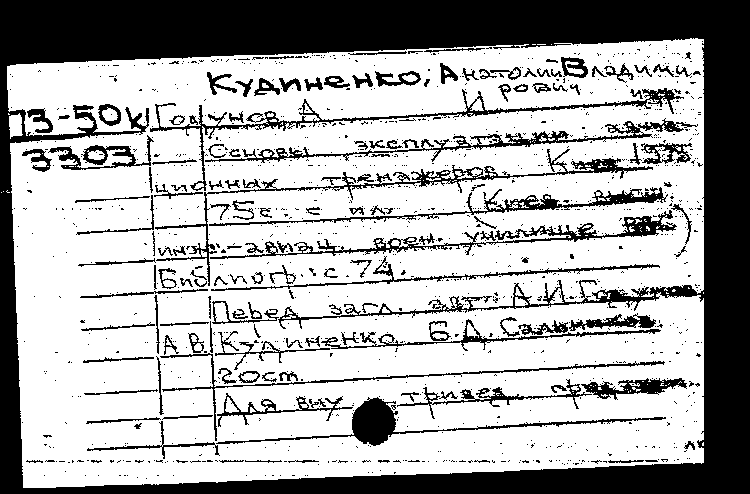 Кудиненко, Анатолий Владими-
рович
73-50к Годунов, А И
3303 Основы эксплуатации авиа-
ционных тренажеров. Киев,
75 с. с ил (Киев. высш
инж.-авиац. воен. училище
Библиогр.: с. 74.
Перед загл. авт: А.И. Годунов,
А.В. Кудиненко, Б.Д. Сальников
гост.
Для вну тривед.